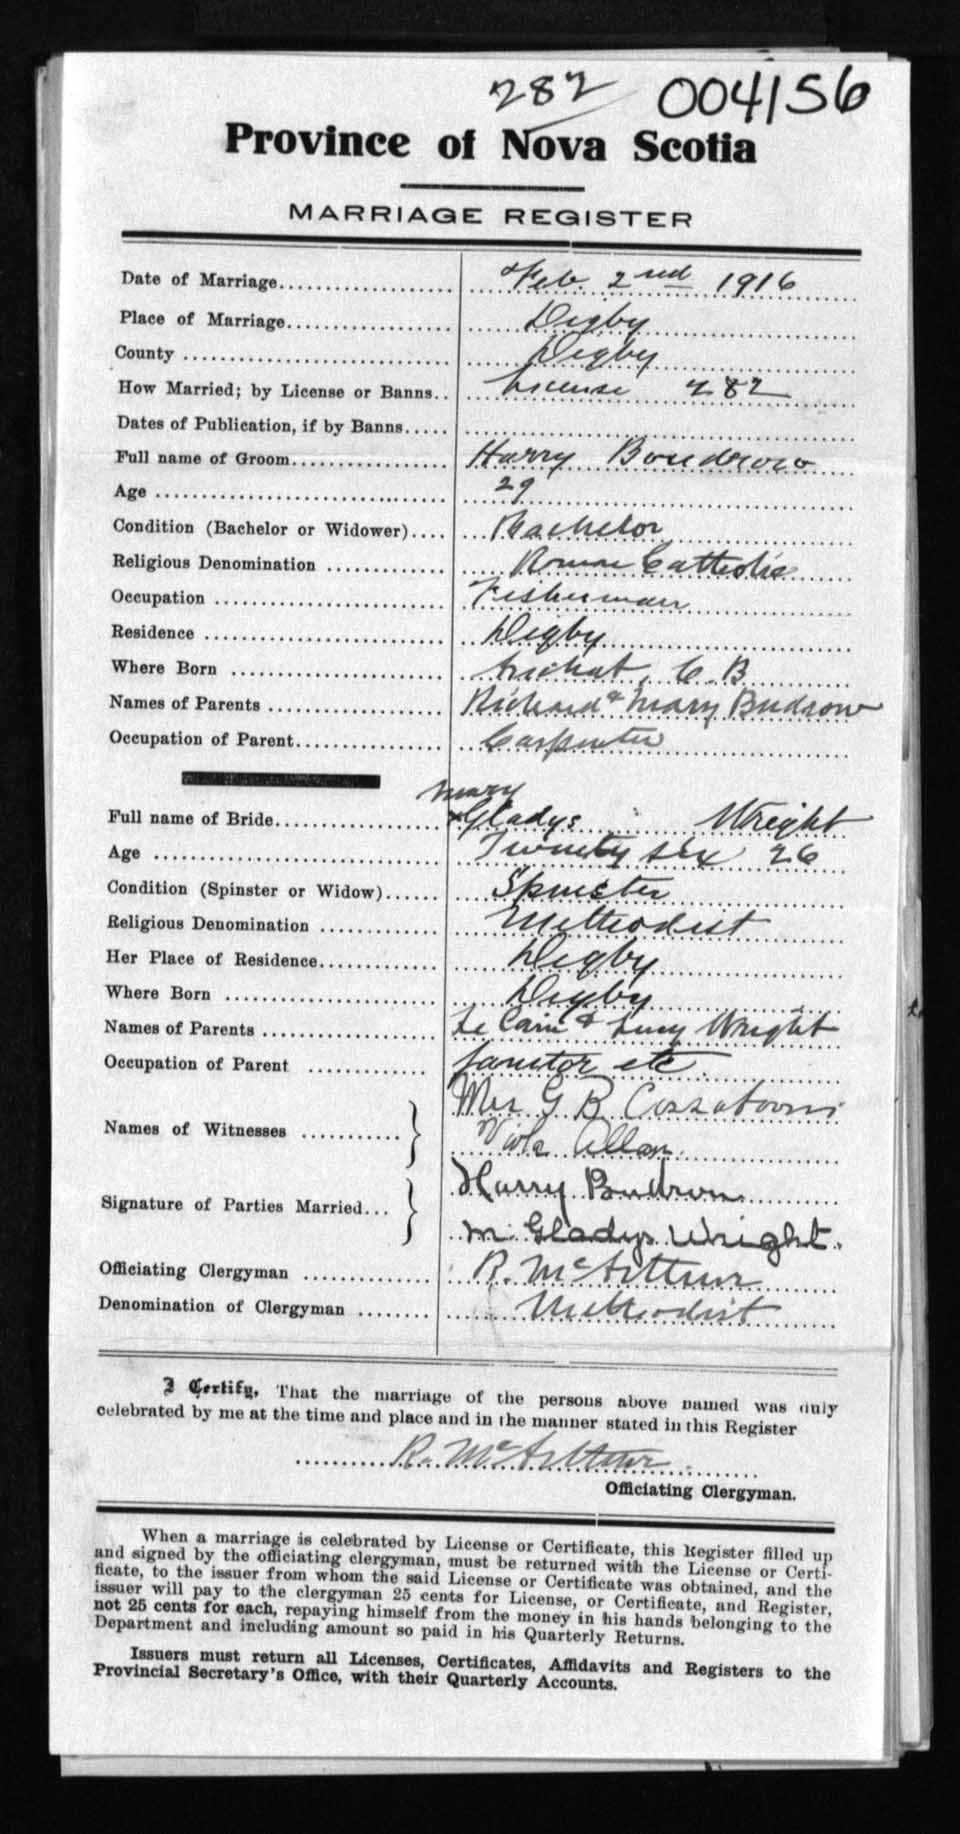 282 004156
Province of Nova Scotia
MARRIAGE REGISTER
Date of Marriage Feb. 2nd 1916
Place of Marriage Digby
County Digby
How Married; by License or Banns License 282
Dates of Publication, if by Banns
Full name of Groom Harry Boudrow
Age 29
Condition (Bachelor or Widower) Bachelor
Religious Denomination Roman Catholic
Occupation Fisherman
Residence Digby
Where Born Arichat, C.B
Names of Parents Richard & Mary Budrow
Occupation of Parent Carpenter
Mary
Full name of Bride Gladys Wright
Age Twenty six 26
Condition (Spinster or Widow) Spinster
Religious Denomination Methodist
Her Place of Residence Digby
Where Born Digby
Names of Parents Le Cain & Lucy Wright
Occupation of Parent Janitor etc.
Mrs G B Cossaboom
Names of Witnesses
Viola Allan
Harry Budrow
Signature of Parties Married
M. Gladys Wright.
Officiating Clergyman R. McArthur
Denomination of Clergyman Methodist
I Certify, That the marriage of the persons above named was duly
celebrated by me at the time and place and in the manner stated in this Register
R. McArthur
Officiating Clergyman.
When a marriage is celebrated by License or Certificate, this Register filled up
and signed by the officiating clergyman, must be returned with the License or Certi-
ficate, to the issuer from whom the said License or Certificate was obtained, and the
issuer will pay to the clergyman 25 cents for License, or Certificate, and Register,
not 25 cents for each, repaying himself from the money in his hands belonging to the
Department and including amount so paid in his Quarterly Returns.
Issuers must return all Licenses, Certificates, Affidavits and Registers to the
Provincial Secretary's Office, with their Quarterly Accounts.